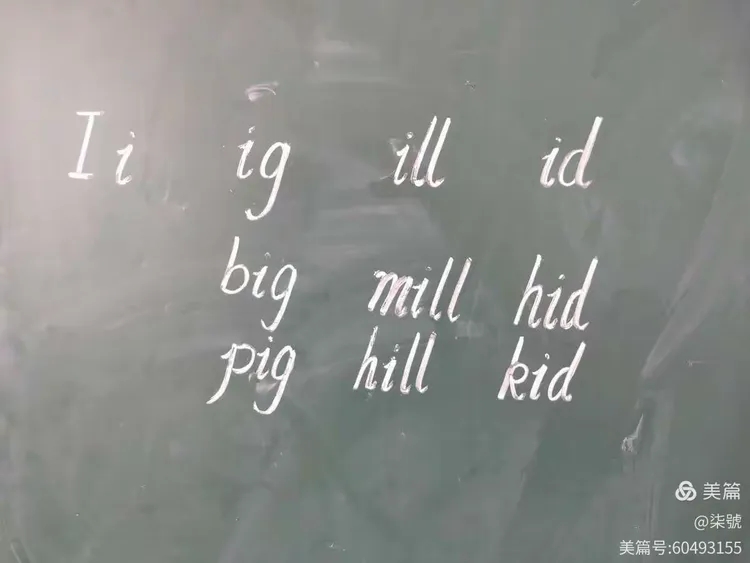 I i ig ill id
big mill hid
pig hill kid
美篇
@柒號
美篇号:60493155